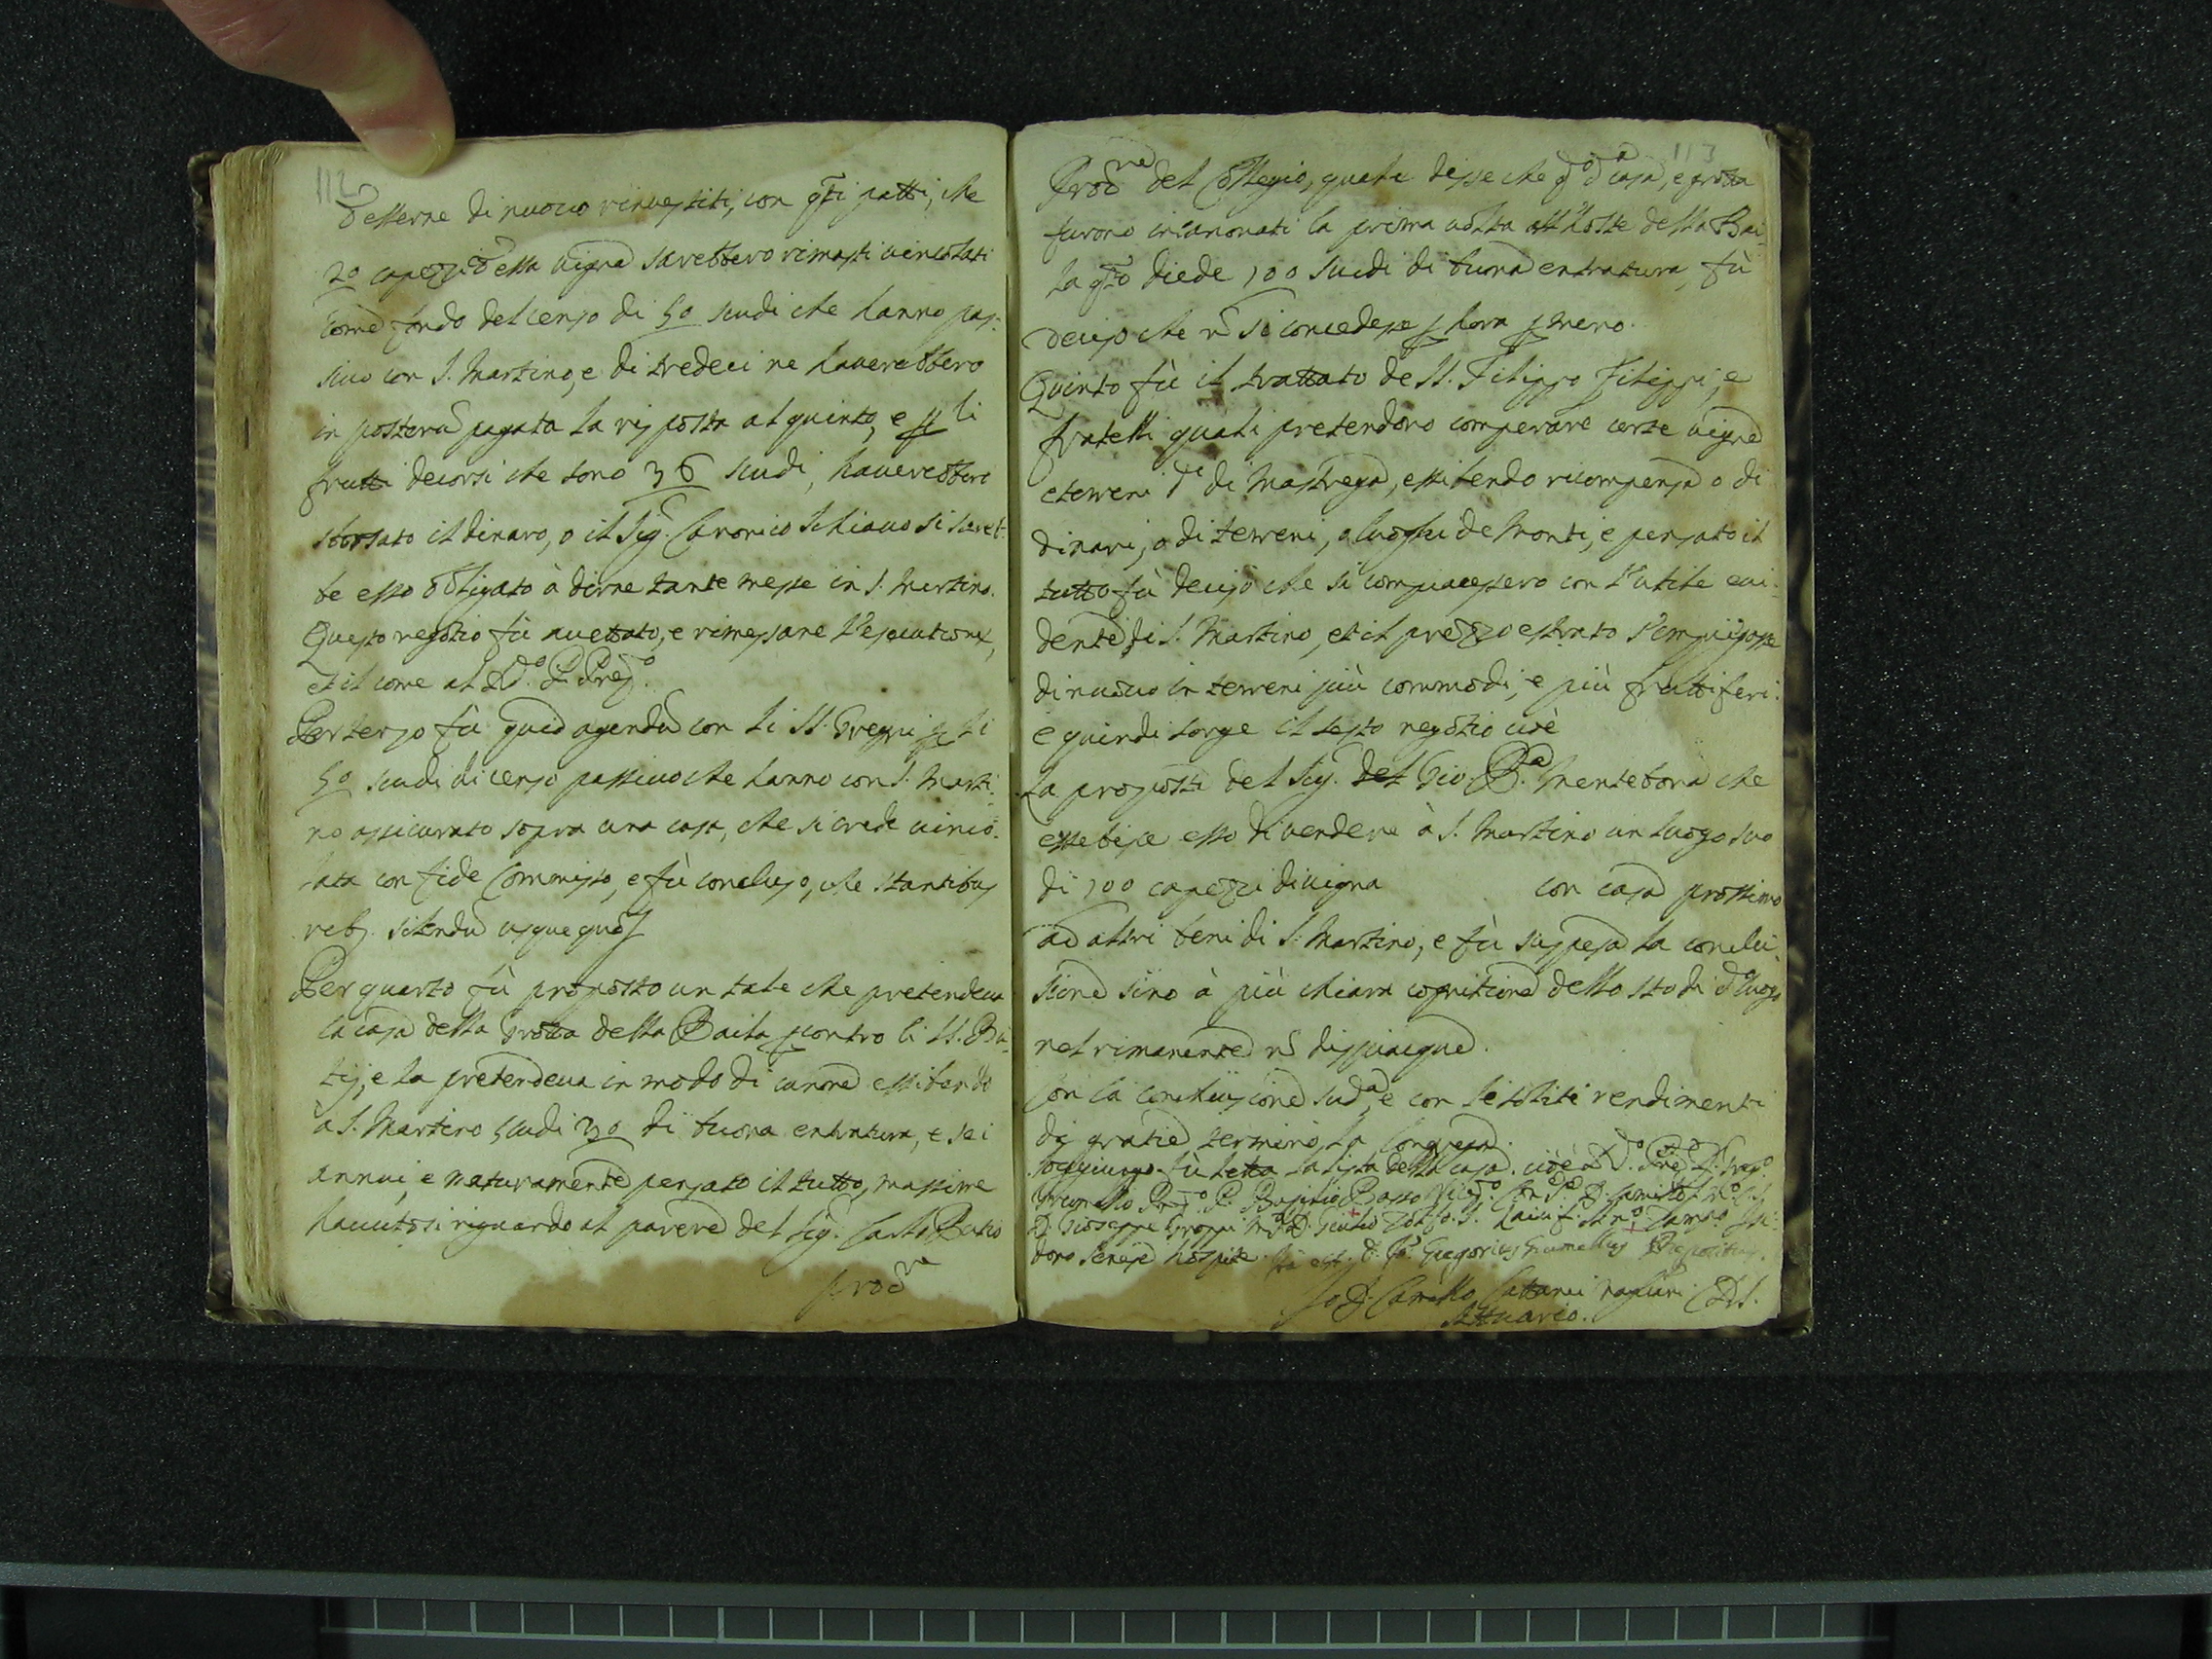 112
d'esserne di nuovo rinvestiti, con q̃ti patti, che
20 capezzi d'essa vigna sarebbero rimasti vincolati
come fondo del censo di 50 scudi che hanno pas-
sivo con S. Martino, e di tredeci ne haverebbero
in posterũ pagata la risposta al quinto, e p li
frutti decorsi che sono 36 scudi, haverebbero
sborsato il dinaro, o il Sig. Canonico Schiavo si sareb-
be esso obligato à dirne tante messe in S. Martino.
Questo negotio fù accettato, e rimessane l'esecutione,
et il come al R̃do. P. Prep̃o.
Per terzo fù quid agendũ con li SS. Greppi p li
50 scudi di censo passivo che hanno con S. Marti-
no assicurato sopra una casa, che si crede vinco-
lata con fide Commisso, e fù concluso, che stantibus
reb9 silendũ usquequõ
Per quarto fù proposto un tale che pretendeva
la casa della Grotta della Baila contro li SS. Bu-
tij, e la pretendeva in modo di canone essibendo
à S. Martino scudi 30 di buona entratura, e sei
annui, e maturamente pensato il tutto, massime
havutosi riguardo al parere del Sig. Carlo Butio
procre
113
Procre del Collegio, quale disse che q̃do d.a casa, e grotta
furono incanonati la prima volta all'hoste della Bai-
la q̃sto diede 100 scudi di buona entratura, fù
deciso che nõ si concedesse p hora p meno.
Quinto fù il trattato de SS. Filippo Filippi, e
fratelli quali pretendono comperare certe vigne
e terreni di Mastrega, essibendo ricompensa o di
dinari, o di terreni, o luoghi de Monti, e pensato il
tutto fù deciso che si compiacessero con l'utile evi-
dente di S. Martino, et il prezzo estrato s'impiegasse
di nuovo in terreni più commodi, e più fruttiferi.
e quindi sorge il sesto negotio cioè
La proposta del Sig. del Gio. B.a Mentebona che
essebisce esso di vendere à S. Martino un luogo suo
di 100 capezzi di vigna con casa prossimo
ad altri beni di S. Martino, e fù sospesa la conclu-
sione sino à più chiara cognitione dello sto di d.o luogo
nel rimanente nõ dispiacque.
Con la conclusione sud.a, e con le solite rendimenti
di gratie terminò la Congrega.
Soggiungo fù letta la lista della casa. cioè R̃do. Prep. D. Greg.o
Grumello Prep.o P. Basilio Basso Camillo
D. Gioseppe Greppi D. Giulio
doro Senese hospite. Ita est D. Jo. Gregorius Grumellus Prepositus.
Io D. Camillo Cattanei
Attuario.